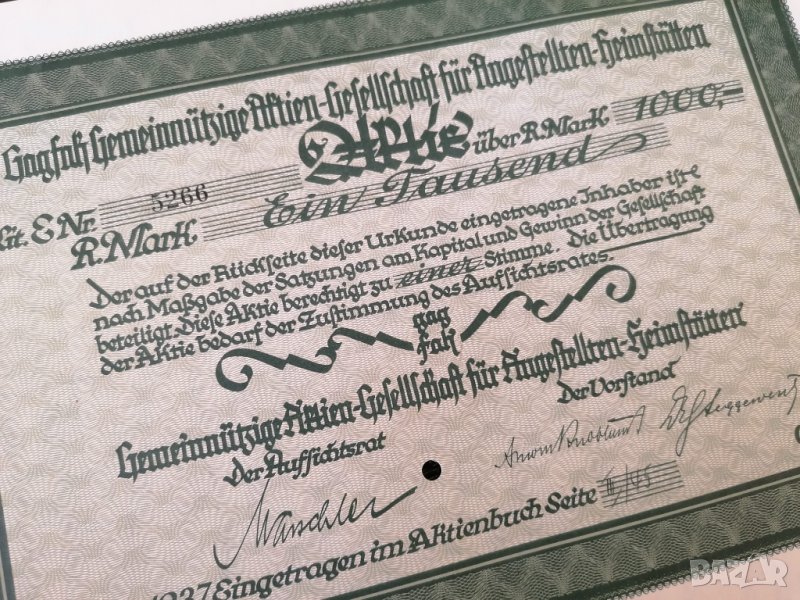 Gagfah Gemeinnützige Aktien-Gesellschaft für Angestellten-Heimstätten
Aktie über R.Mark 1000,-
Lit. E Nr. 5266
R.Mark Ein Tausend
Der auf der Rückseite dieser Urkunde eingetragene Inhaber ist
nach Maßgabe der Satzungen am Kapital und Gewinn der Gesellschaft
beteiligt. Diese Aktie berechtigt zu einer Stimme. Die Übertragung
der Aktie bedarf der Zustimmung des Aufsichtsrates.
gag
fah
Gemeinnützige Aktien-Gesellschaft für Angestellten-Heimstätten
Der Aufsichtsrat
Der Vorstand
1937 Eingetragen im Aktienbuch Seite
BAZAR